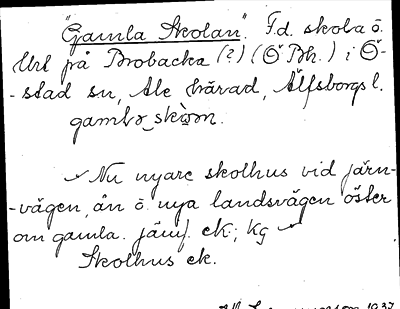 "Gamla Skolan". F.d. skola ö.
Url på Brobacka (?) (Ö Bh.) i Ö-
-stad sn, Ale härad, Älfsborgs l.
gambɷ skɷn.
Nu nyare skolhus vid järn-
-vägen, än ö. nya landsvägen öster
om gamla. jämf. ek; kg
Skolhus ek.
1937